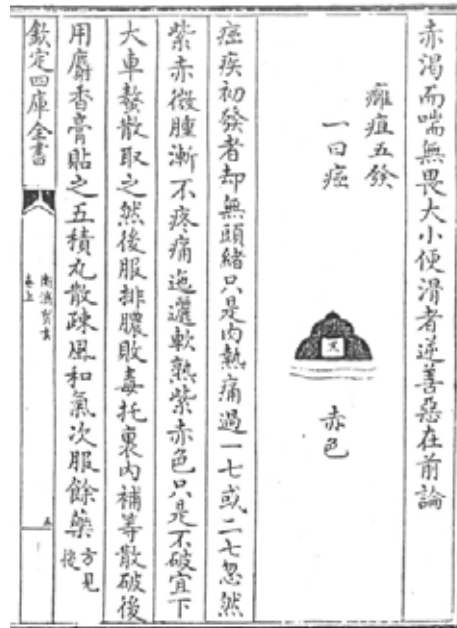 赤渴而喘無畏大小便滑者逆善惡在前論
癰疽五發
一曰癌
赤色
癌疾初發者却無頭緒只是内熱痛過一七或二七忽然
紫赤微腫漸不疼痛迤邐軟熟紫赤色只是不破宜下
大車螯散取之然後服排膿敗毒托裏内補等散破後
用麝香膏貼之五積丸散疎風和氣次服餘藥方見後
欽定四庫全書
衛濟寶書
卷上
五